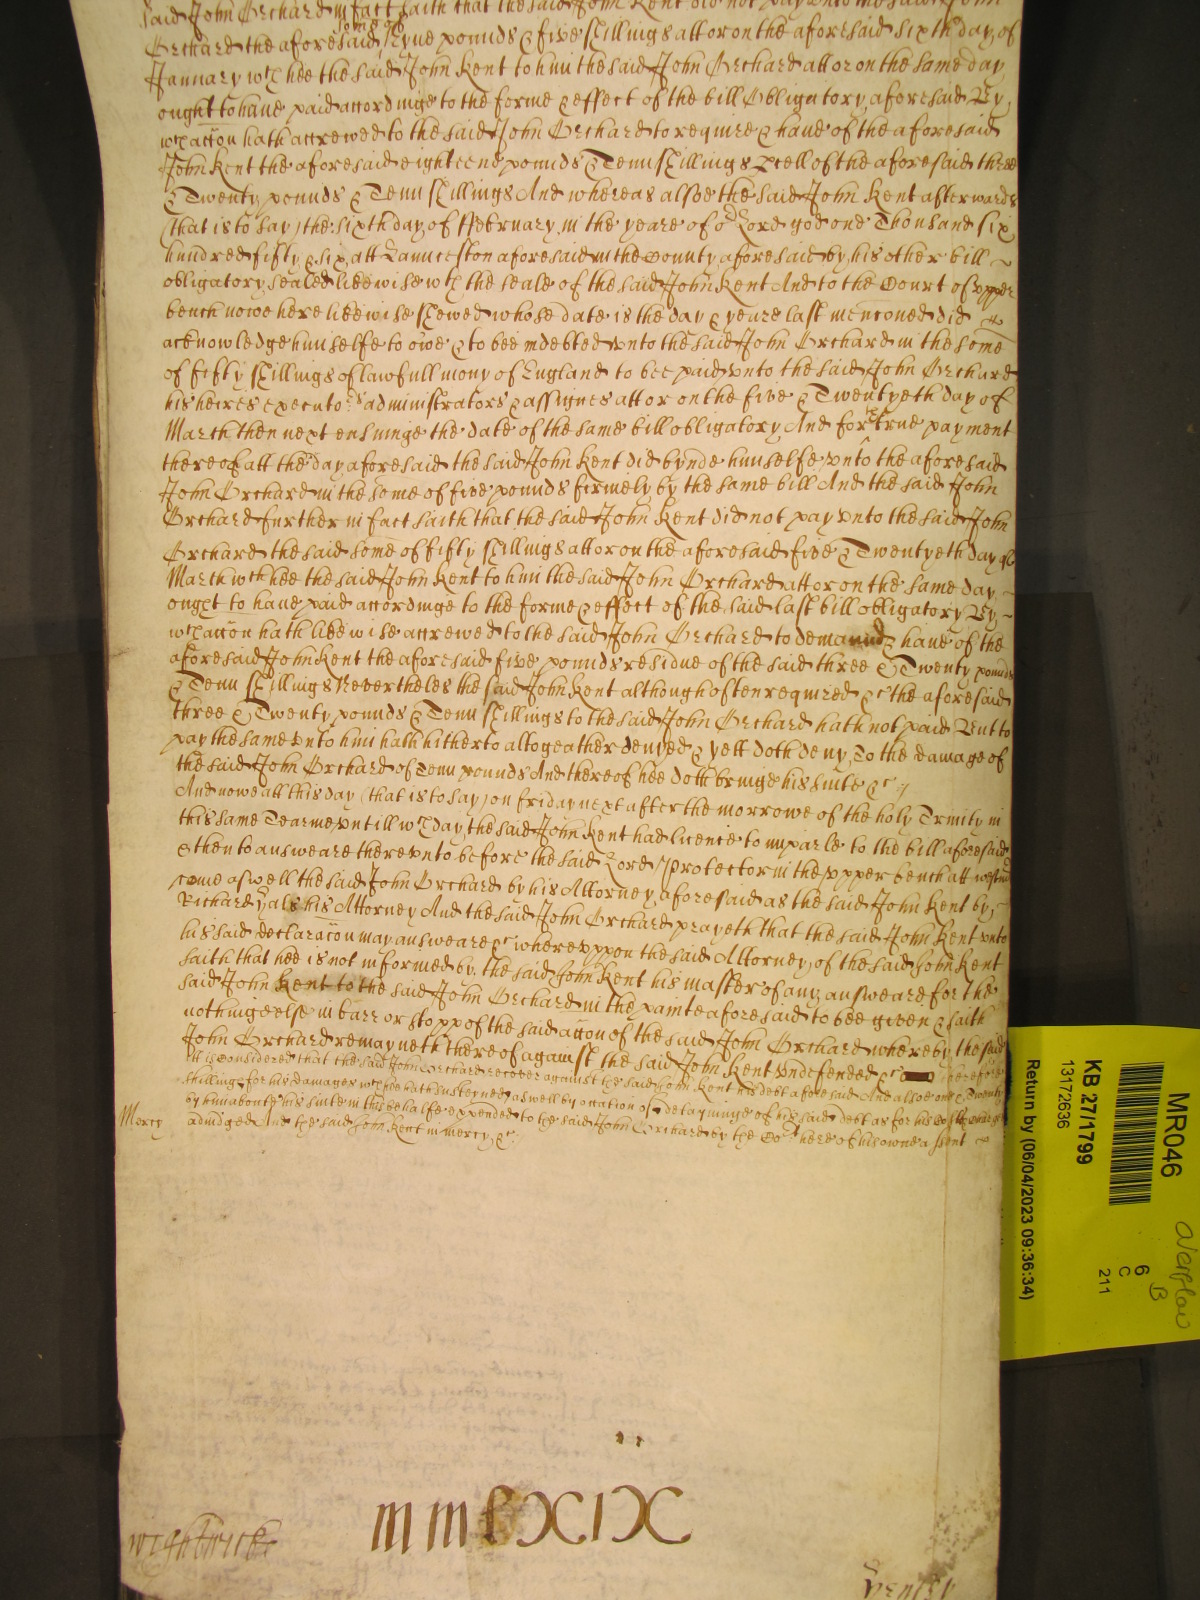 said John Orchard in fact saith that the said John Kent did not pay unto the said John
Orchard the aforesaid some of Nyne pounds & five shillings att or on the aforesaid sixth day of
January wch hee the said John Kent to him the said John Orchard att or on the same day
ought to have paid accordinge to the forme & effect of the bill Obligatory aforesaid By
wch accon hath accrewed to the said John Orchard to require & have of the aforesaid
John Kent the aforesaid eighteene pounds & Tenn shillings pcell of the aforesaid three
& Twenty pounds & Tenn shillings And whereas alsoe the said John Kent afterwards
(that is to say) the sixth day of ffebruary in the yeare of or Lord god one Thousand six
hundred fifty & six att Launceston aforesaid in the County aforesaid by his other bill
obligatory sealed likewise wth the seale of the said John Kent And to the Court of upper
bench nowe here likewise shewed whose date is the day & yeare last menconed did
acknowledge himselfe to owe & to bee indebted unto the said John Orchard in the some
of fifty shillings of lawfull mony of England to bee paid unto the said John Orchard
his heires executors administrators & assignes att or on the five & Twentyeth day of
March then next ensuinge the date of the same bill obligatory And for the true payment
thereof att the day aforesaid the said John Kent did bynde himselfe unto the aforesaid
John Orchard in the some of five pounds firmely by the same bill And the said John
Orchard further in fact saith that the said John Kent did not pay unto the said John
Orchard the said some of fifty shillings att or on the aforesaid five & Twentyeth day of
March wch hee the said John Kent to him the said John Orchard att or on the same day
ought to have paid accordinge to the forme & effect of the said last bill obligatory By
wch accon hath likewise accrewed to the said John Orchard to demaund & have of the
aforesaid John Kent the aforesaid five pounds residue of the said three & Twenty pounds
& Tenn shillings Nevertheles the said John Kent although often required &c the aforesaid
three & Twenty pounds & Tenn shillings to the said John Orchard hath not paid But to
pay the same unto him hath hitherto altogeather denyed & yett doth deny To the damage of
the said John Orchard of Tenn pounds And thereof hee doth bringe his suite &c
And nowe att this day (that is to say) on friday next after the morrowe of the holy Trinity in
this same Tearme untill wch day the said John Kent had licence to imparle to the bill aforesaid
& then to answeare thereunto before the said Lord Protector in the upper bench att westmr
come aswell the said John Orchard by his Attorney aforesaid as the said John Kent by
Richard his Attorney And the said John Orchard prayeth that the said John Kent unto
his said declaracon may answeare &c whereuppon the said Attorney of the said John Kent
saith that hee is not informed by the said John Kent his master of any answeare for the
said John Kent to the said John Orchard in the plainte aforesaid to bee given & saith
nothinge else in barr or stopp of the said accon of the said John Orchard whereby the said
John Orchard remayneth thereof against the said John Kent undefended &c Therefore
it is considered that the said John Orchard recover against the said John Kent his debt aforesaid And alsoe one & Twenty
shillings for his damages wch hee hath susteyned aswell by occation of the detayninge of his said debt as for his Costs & charges
by him aboute his suite in this behalfe expended to the said John Orchard by the Cort here of his owne assent
Mercy
adiudged And the said John Kent in mercy &c
MMCXIX
Wightwicke
KB 27/1799
13172636
Return by (06/04/2023 09:36:34)
MR046
6
C
211
B
overflow